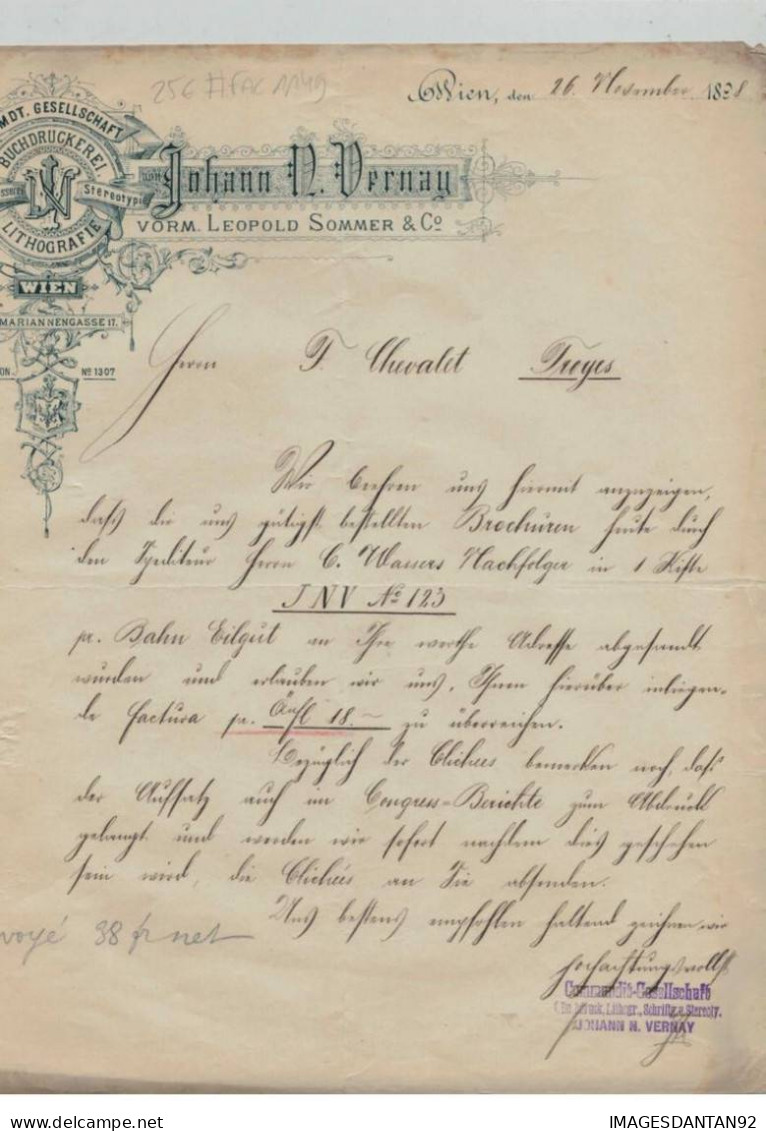 25€ FAC 1149
Wien, den 26. November 1888
COMDT. GESELLSCHAFT
BUCHDRUCKEREI
Stereotypie
LITHOGRAFIE
WIEN
MARIANNENGASSE 17.
No 1307
von Johann N. Vernay
VORM. LEOPOLD SOMMER & Co
Herrn F. Chevalet Troyes
Wir beehren uns hiermit anzuzeigen,
dass die uns gütigst bestellten Brochüren heute durch
den Spediteur Herrn C. Wassers Nachfolger in 1 Kiste
JNV No 123
pr. Bahn Eilgut an Ihre werthe Adresse abgesandt
wurden und erlauben wir uns, Ihnen hierüber inliegen-
de Factura pr. 18.~ zu überreichen.
Bezüglich der Clichées bemerken noch, dass
der Aufsatz auch im Congress-Berichte zum Abdruck
gelangt und werden wir sofort nachdem dies geschehen
sein wird, die Clichées an Sie absenden.
Uns bestens empfohlen haltend zeichnen wir
voyé 38 fr net
hochachtungsvollst
Commandit-Gesellschaft
f. Buchdruck, Lithogr., Schriftg. u. Stereoty.
JOHANN N. VERNAY
delcampe.net
IMAGESDANTAN92